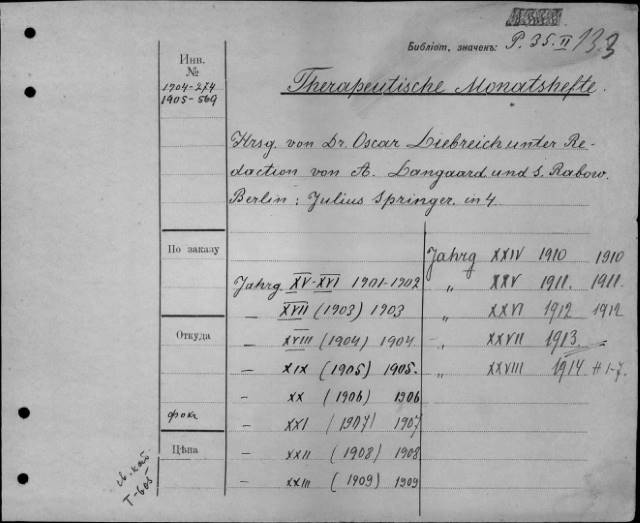 Библіот. значенъ: P. 35. II 133
Инв.
№
1904-274
1905-569
Therapeutische Monatshefte.
Hrsg. von Dr. Oscar Liebreich unter Re-
daction von A. Langaard und S. Rabow.
Berlin: Julius Springer. in 4
По заказу
Откуда
фокг
Цѣна
Т-605
Jahrg XV-XVI 1901-1902
— XVII (1903) 1903
— XVIII (1904) 1904
— XIX (1905) 1905.
— XX (1906) 1906
— XXI (1907) 1907
— XXII (1908) 1908
— XXIII (1909) 1909
Jahrg XXIV 1910 1910
„ XXV 1911. 1911.
„ XXVI 1912 1912
„ XXVII 1913. „
„ XXVIII 1914 H 1-7.